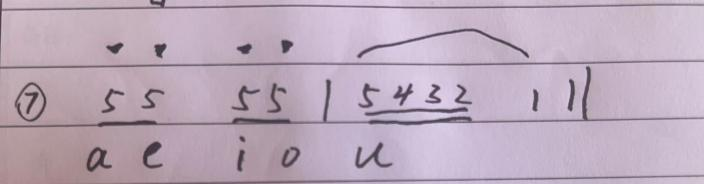 ⑦ 5 5 5 5 | 5 4 3 2 1 ||
a e i o u